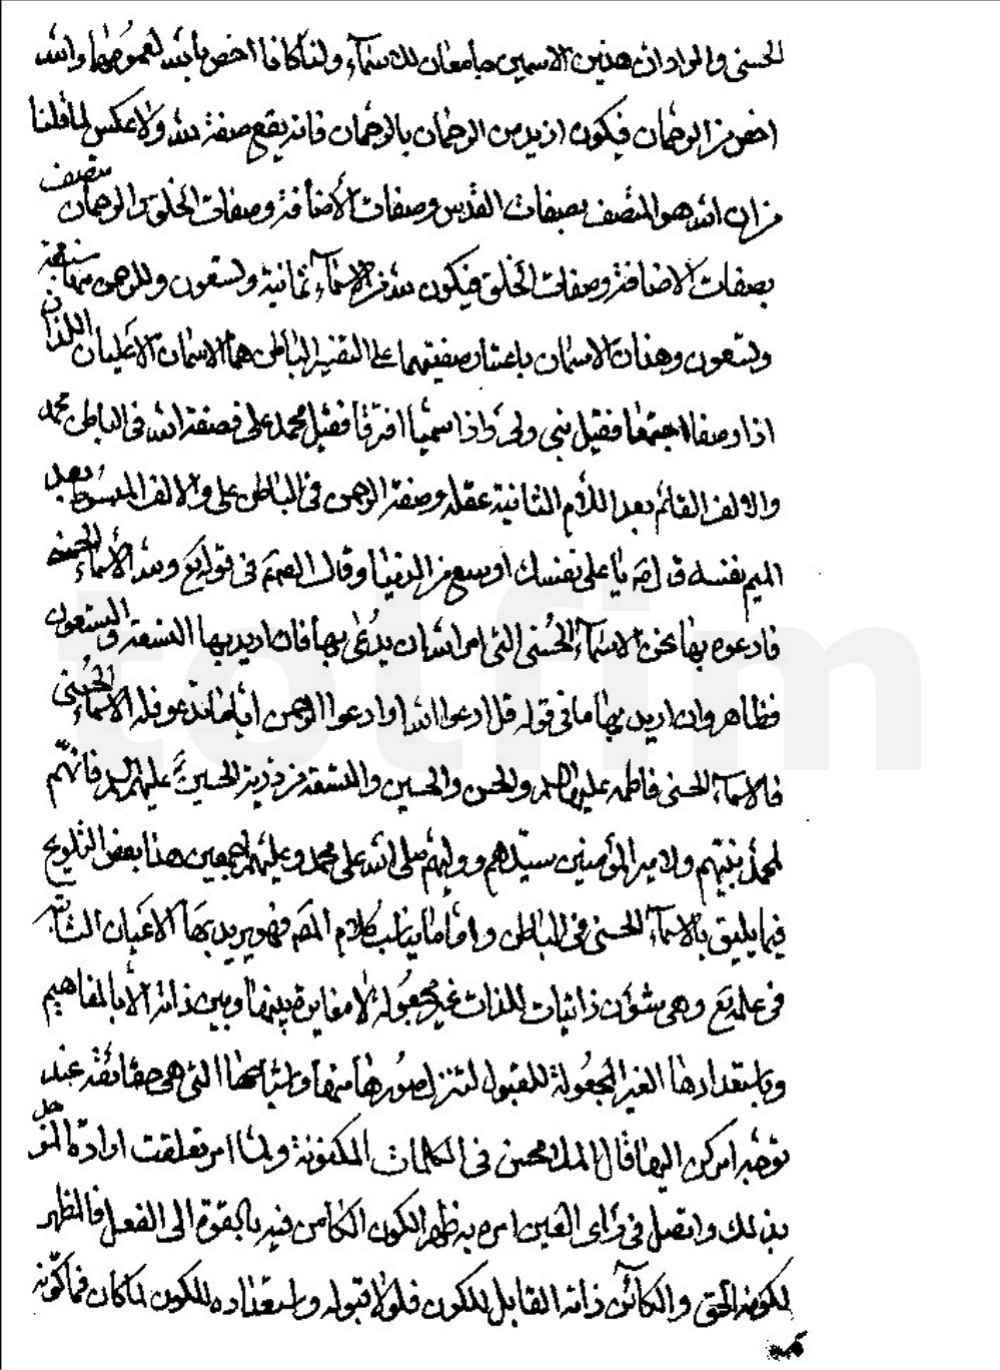 الحسنى والمراد ان هذين الاسمين جامعان للاسماء ولما كانا اخص بالله لعمومهما والله
اخص من الرحمان فيكون ازيد من الرحمان بالرحمان فانه يقع صفة لله ولا عكس لما قلنا
من ان الله هو المتصف بصفات القدس وصفات الأضافة وصفات الخلق والرحمان متصف
بصفات الاضافة وصفات الخلق فيكون لله من الاسماء ثمانية وتسعون وللرحمن سبعة
وتسعون وهذان الاسمان باعتبار صفتيهما على التفسير الباطن هما الاسمان الاعليان اللذان
اذا وصفا اجتمعا فقيل نبي ولي واذا سميا افترقا فقيل محمد علي فصفة الله في الباطن محمد
والالف القائم بعد اللام الثانية عقله وصفة الرحمن في الباطن علي والالف المبسوط بعد
الميم نفسه قال ص يا علي نفسك اوسع من الدنيا وقال المصم في قوله تع ولله الأسماء الحسنى
فادعوه بها نحن الاسماء الحسنى التي امر الله ان يدعى بها فان اريد بها التسعة والتسعون
فظاهر وان اريد بها ما في قوله قل ادعوا الله او ادعوا الرحمن اياما تدعو فله الاسماء الحسنى
فالاسماء الحسنى فاطمه عليها السلام والحسن والحسين والتسعة من ذرية الحسين عليهم السلام فانهم
لمحمد نبيهم ولامير المؤمنين سيدهم ووليهم صلى الله على محمد وعليهم اجمعين هذا بعض التلويح
فيما يليق بالاسماء الحسنى في الباطن واما ما يناسب كلام المصم فهو يريد بها الاعيان الثابتة
في علمه تع وهي شؤن ذاتيات للذات غير مجعولة لا مغايرة بينها وبين ذاته الا بالمفاهيم
وباستعدادها الغير المجعولة للقبول لتنزل صورها منها واشباحها التي هي حقائقه عند
توجه امر كن اليها قال الملا محسن في الكلمات المكنونة ولما امر تعلقت ارادة الموجد
بذلك واتصل في راى العين امره به ظهر الكون الكامن فيه بالقوة الى الفعل فالمظهر
لكونه الحق والكائن ذاته القابل للكون فلولا قبوله واستعداده للكون لما كان فما كونه